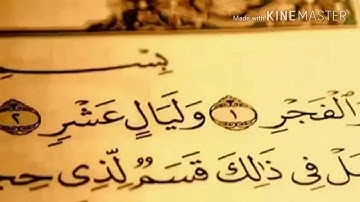 Made with KINEMASTER
بِسْمِ
الْفَجْرِ ١ وَلَيَالٍ عَشْرٍ ٢
هَلْ فِي ذَٰلِكَ قَسَمٌ لِّذِي حِجْ